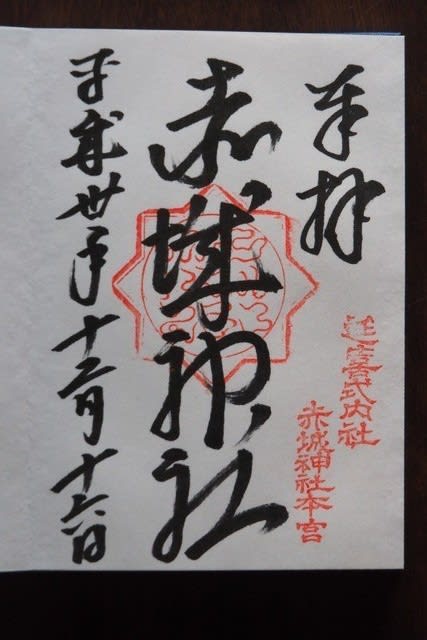 奉拝
延喜式内社
赤城神社本宮
赤城神社
平成丗年十二月十六日